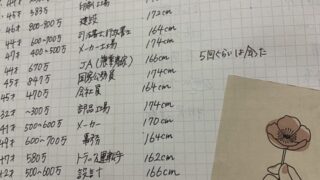 45才 383万 印刷工場
46才 800~900万 建設 172cm
44才 600~700万 司法書士行政書士 164cm
47才 400~500万 メーカー工場 174cm
44才 670万 JA(農業関係) 166cm 5回ぐらいは会った
45才 847万 国家公務員 174cm
45才 470万 会社員 164cm
32才 ~300万 部品工場 174cm
47才 500~600万 メーカー 170cm
49才 600~700万 事務 164cm
47才 580万 トラック運転手 162cm
42才 500~600万 設計士 166cm